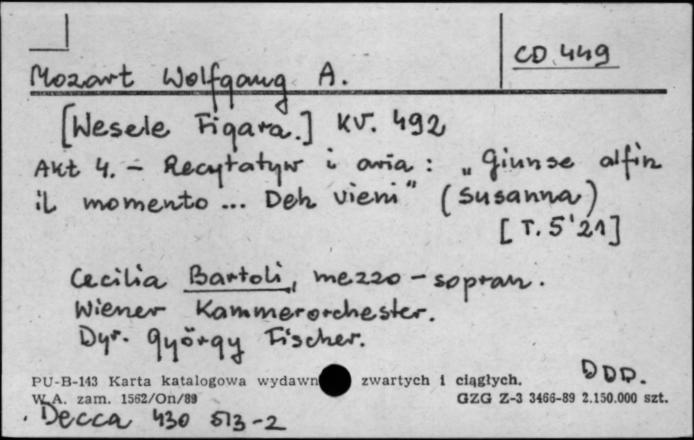 CD 449
Mozart Wolfgang A.
[Wesele Figara.] KV. 492
Akt 4. – Recytatyw i aria: „Giunse alfin
il momento ... Deh vieni" (Susanna)
[T. 5'21]
Cecilia Bartoli, mezzo-sopran.
Wiener Kammerorchester.
Dyr. György Fischer.
DDD.
PU-B-143 Karta katalogowa wydawn zwartych i ciągłych.
W.A. zam. 1562/On/89 GZG Z-3 3466-89 2.150.000 szt.
Decca 430 513-2